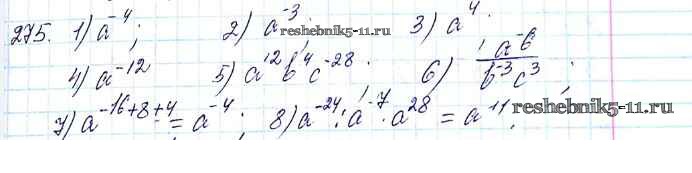 275. 1) a⁻⁴; 2) a⁻³. 3) a⁴.
reshebnik5-11.ru
4) a⁻¹² 5) a¹²b⁴c⁻²⁸. 6) a⁻⁶/b⁻³c³;
7) a⁻¹⁶⁺⁸⁺⁴ = a⁻⁴; 8) a⁻²⁴ : a⁻⁷ · a²⁸ = a¹¹. reshebnik5-11.ru